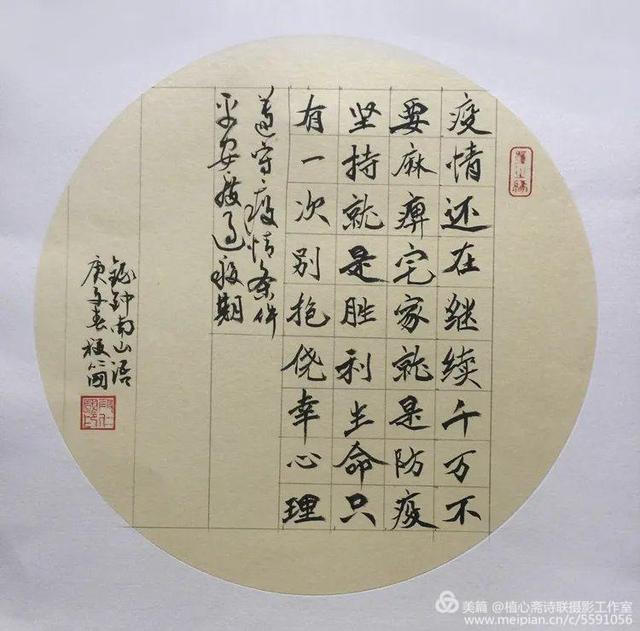 疫情还在继续千万不
要麻痹宅家就是防疫
坚持就是胜利生命只
有一次别抱侥幸心理
遵守疫情条件
平安度过疫期
录钟南山语
庚子春
美篇 @植心斋诗联摄影工作室
www.meipian.cn/c/5591056